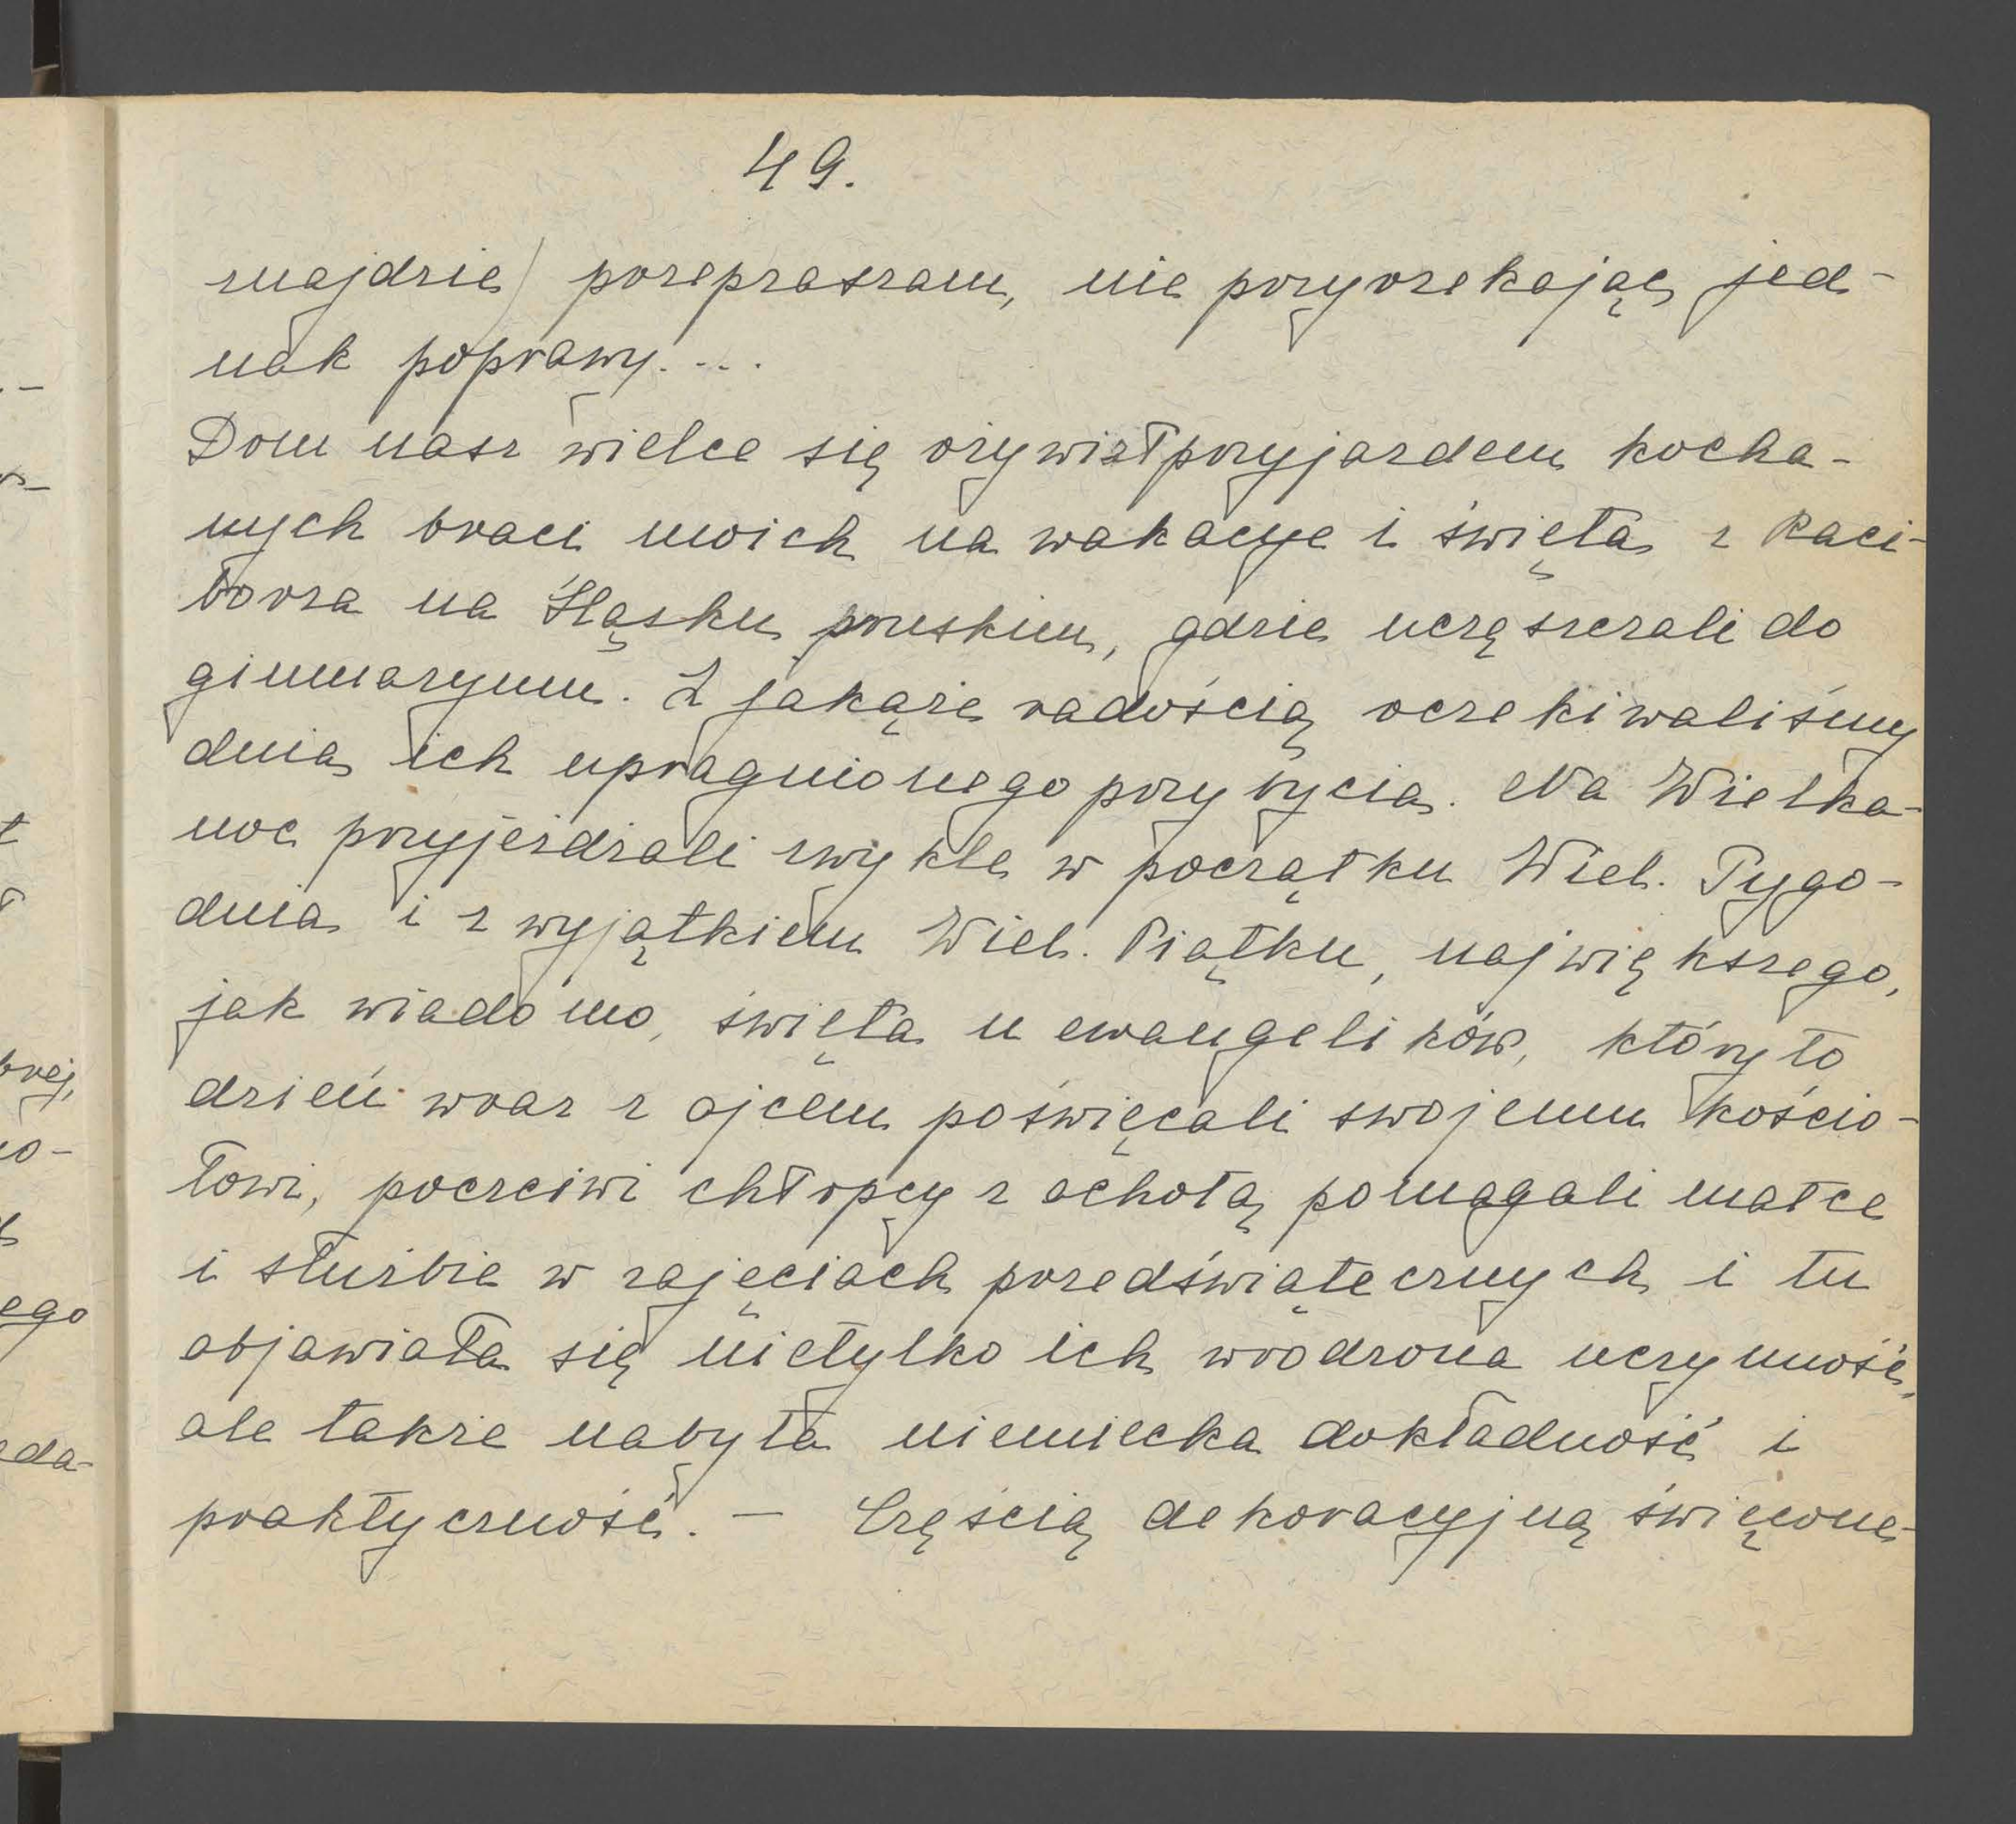 49.
znajdzie) przepraszam, nie przyrzekając jed-
nak poprawy....
Dom nasz wielce się ożywiał przyjazdem kocha-
nych braci moich na wakacye i święta z Raci-
borza na Śląsku pruskim, gdzie uczęszczali do
gimnazyum. Z jakąże radością oczekiwaliśmy
dnia ich upragnionego przybycia. Na Wielka-
noc przyjeżdżali zwykle w początku Wiel. Tygo-
dnia i z wyjątkiem Wiel. Piątku, największego,
jak wiadomo, święta u ewangelików, który to
dzień wraz z ojcem poświęcali swojemu kościo-
łowi, poczciwi chłopcy z ochotą pomagali matce
i służbie w zajęciach przedświątecznych i tu
objawiała się nietylko ich wrodzona uczynność,
ale także nabyta niemiecka dokładność i
praktyczność. — Częścią dekoracyjną święcone-